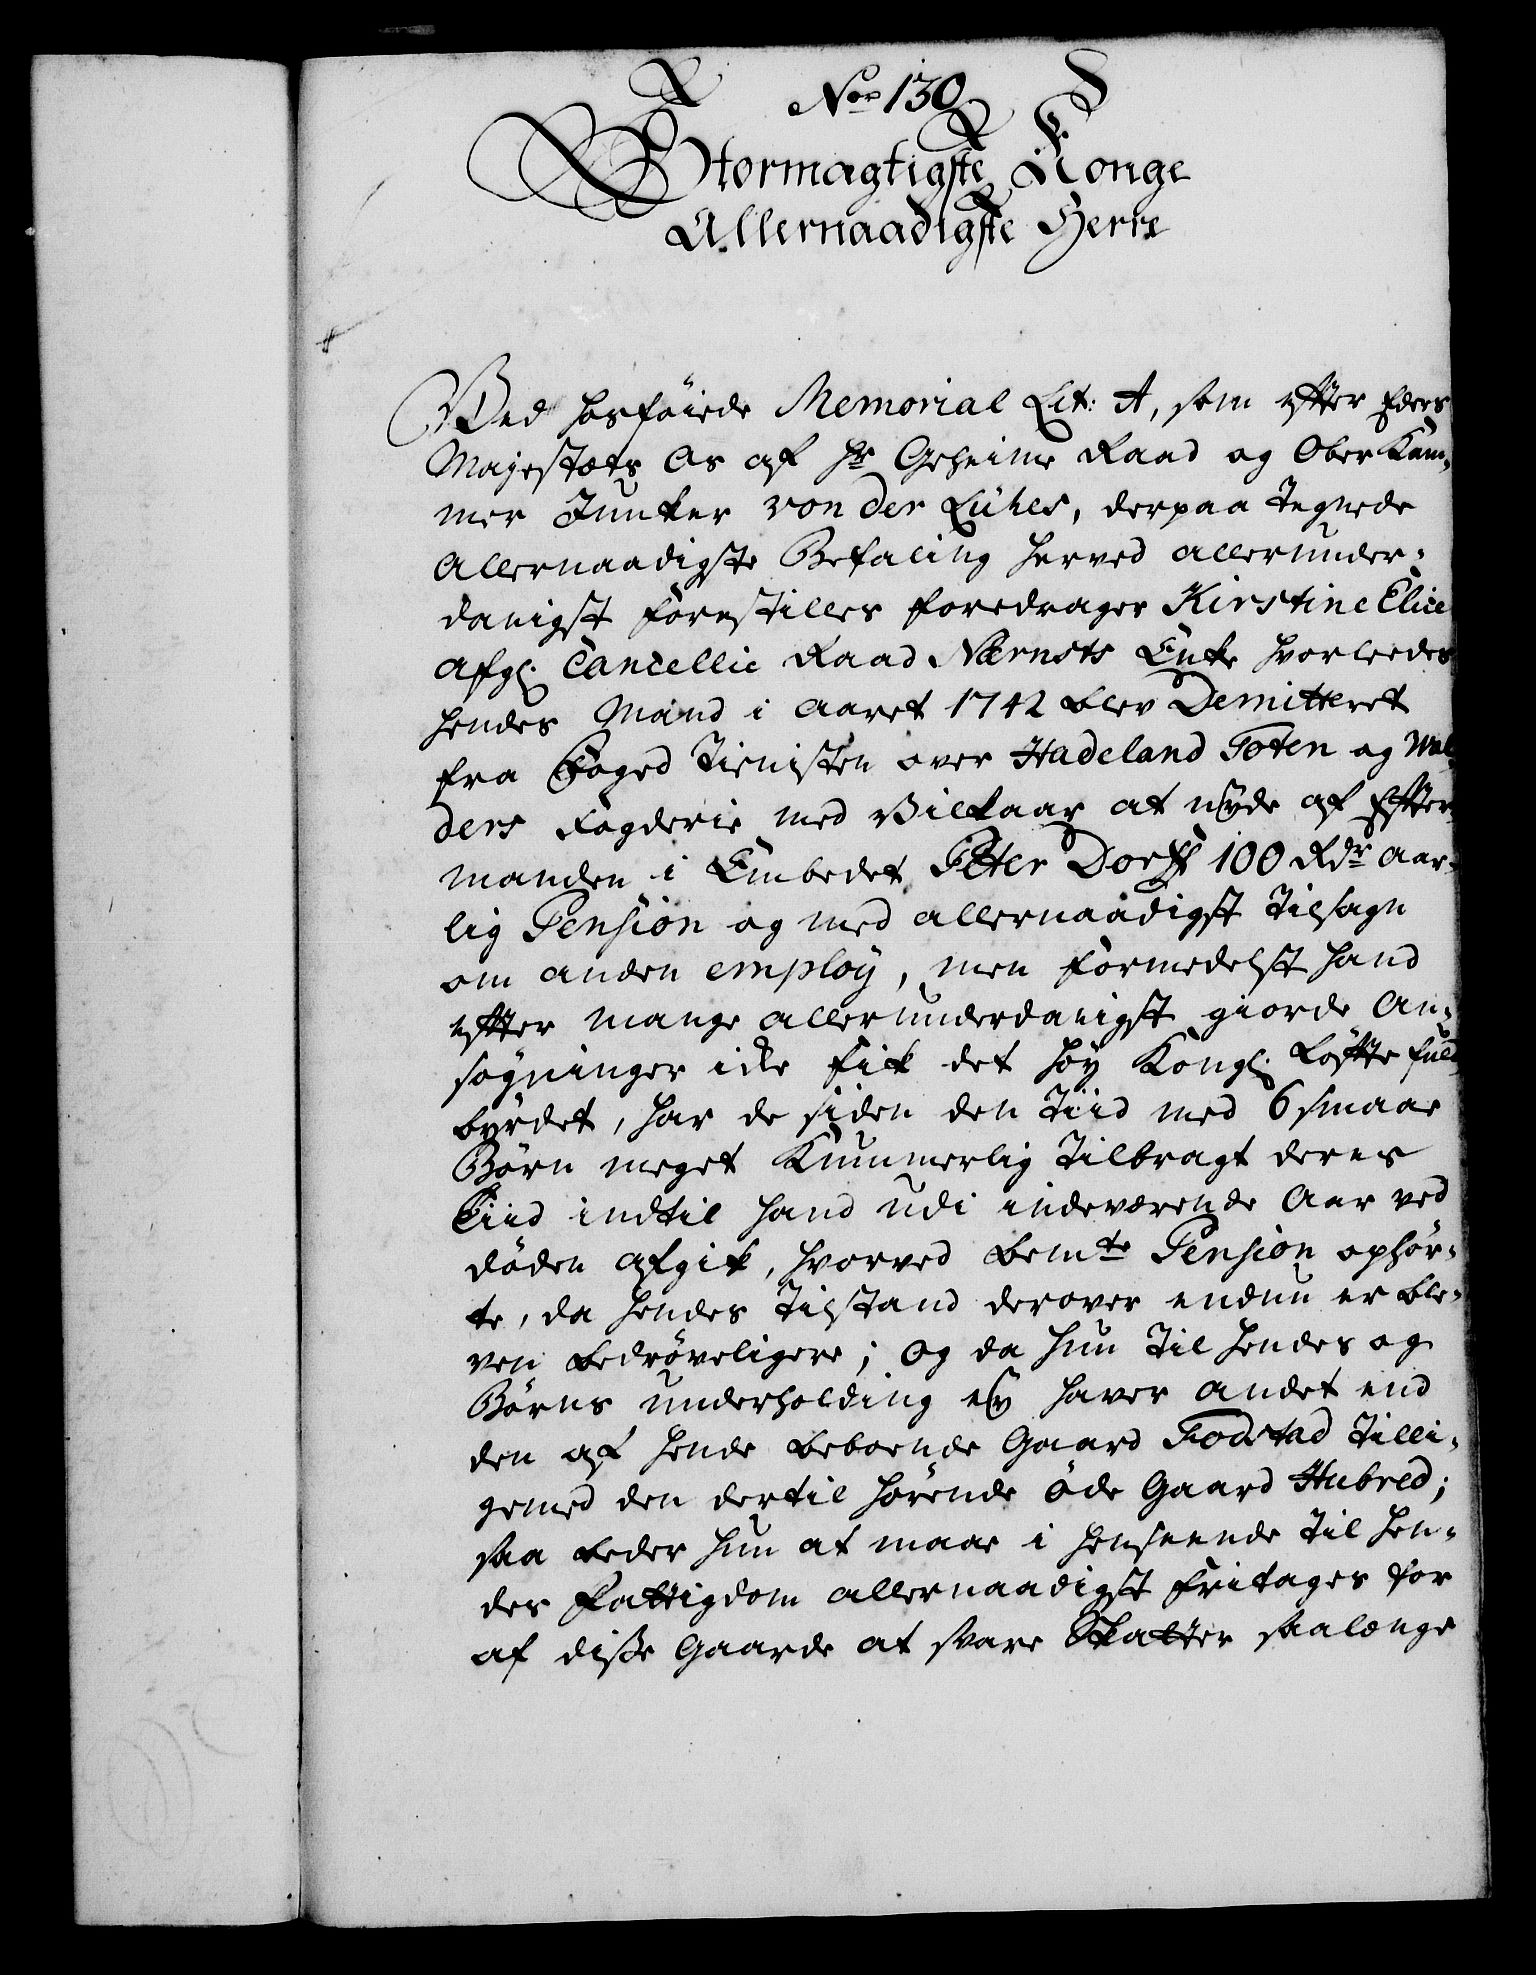 No 130
Stormagtigste Konge
Allernaadigste Herre
Ved hosföiede Memorial Lit: A, som efter Eders
Majestæts Os af Hr Geheime Raad og Ober Kam-
mer Junker von der Lühes, derpaa tegnede
Allernaadigste Befaling herved allerunder-
danigst forestilles foredrager Kirstine Elice
Afgl: Cancellie Raad Nærnsts Enke hvorleedes
hendes Mand i Aaret 1742 blev Demitteret
fra Foged Tienisten over Hadeland Toten og Wal-
ders Fogderie med Vilkaar at nyde af Efter-
manden i Embedet Peter Dorff 100 Rdr aar-
lig Pension og med allernaadigst Tilsagn
om anden employ, men formedelst hand
efter mange allerunderdanigst giorde An-
søgninger icke fik det höy Kongl: Löfte fuld-
byrdet, har de siden den Tiid med 6 smaae
Börn meget Kummerlig tilbragt deres
Tiid indtil hand udi indeværende Aar ved
döden afgik, hvorved bemte Pension ophör-
te, da hendes Tilstand derover endnu er ble-
ven bedröveligere; Og da hun til hendes og
Börns underholding ey haver andet end
den af hende beboende Gaard Fodstad tilli-
gemed den dertil hörende öde Gaard Hubred;
saa beder hun at maae i henseende til hen-
des Fattigdom allernaadigst fritages for
af disse Gaarde at svare Skatter saalænge